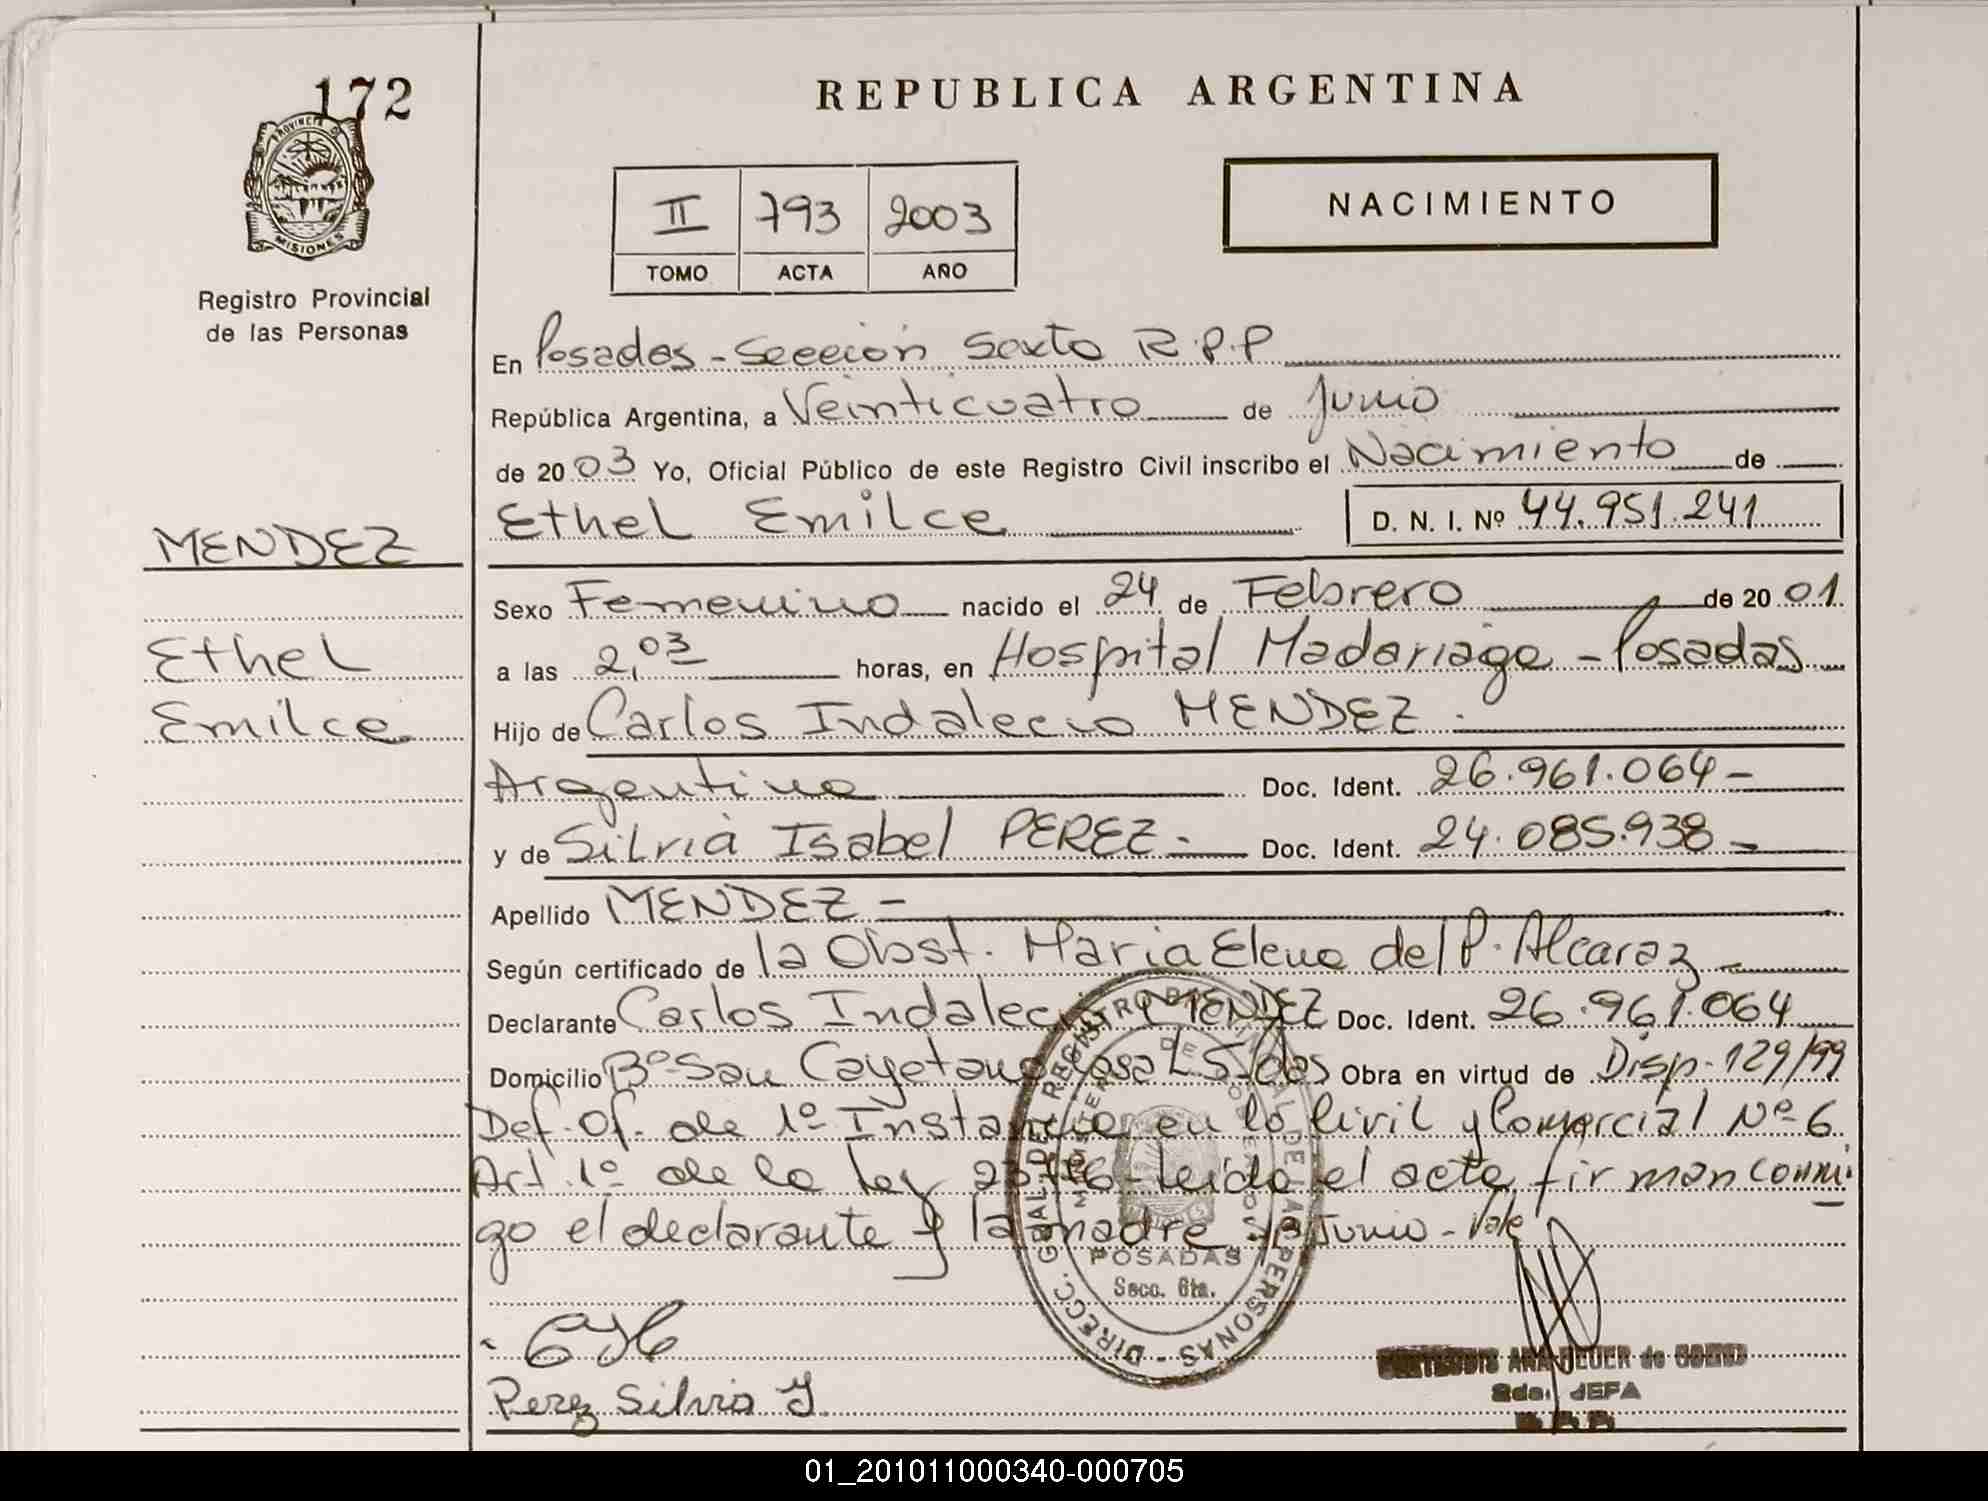 172
PROVINCIA DE
MISIONES
Registro Provincial
de las Personas
REPUBLICA ARGENTINA
II 793 2003
TOMO ACTA AÑO
NACIMIENTO
En Posadas - Sección Sexta R.P.P
República Argentina, a Veinticuatro de Junio
de 20 03 Yo, Oficial Público de este Registro Civil inscribo el Nacimiento de
Ethel Emilce D. N. I. Nº 44.951.241
MENDEZ
Ethel
Emilce
Sexo Femenino nacido el 24 de Febrero de 20 01.
a las 2,03 horas, en Hospital Madariaga - Posadas
Hijo de Carlos Indalecio MENDEZ.
Argentina Doc. Ident. 26.961.064 -
y de Silvia Isabel PEREZ - Doc. Ident. 24.085.938 -
Apellido MENDEZ -
Según certificado de la Obst. Maria Elena del P. Alcaraz
Declarante Carlos Indalecio MENDEZ Doc. Ident. 26.961.064
Domicilio Bº San Cayetano Casa L 5 - Pdas Obra en virtud de Disp. 129/99
Def. Of. de 1º Instancia en lo Civil y Comercial Nº 6
Art. 1º de la ley Leida el acta, firman conmi-
go el declarante y la madre Junio - Vale
DIRECC. GRAL DEL REGISTRO PROVINCIAL DE LAS PERSONAS
MINISTERIO DE GOBIERNO
POSADAS
Secc. 6ta.
Perez Silvia I.
ANA de
2da. JEFA
01_201011000340-000705